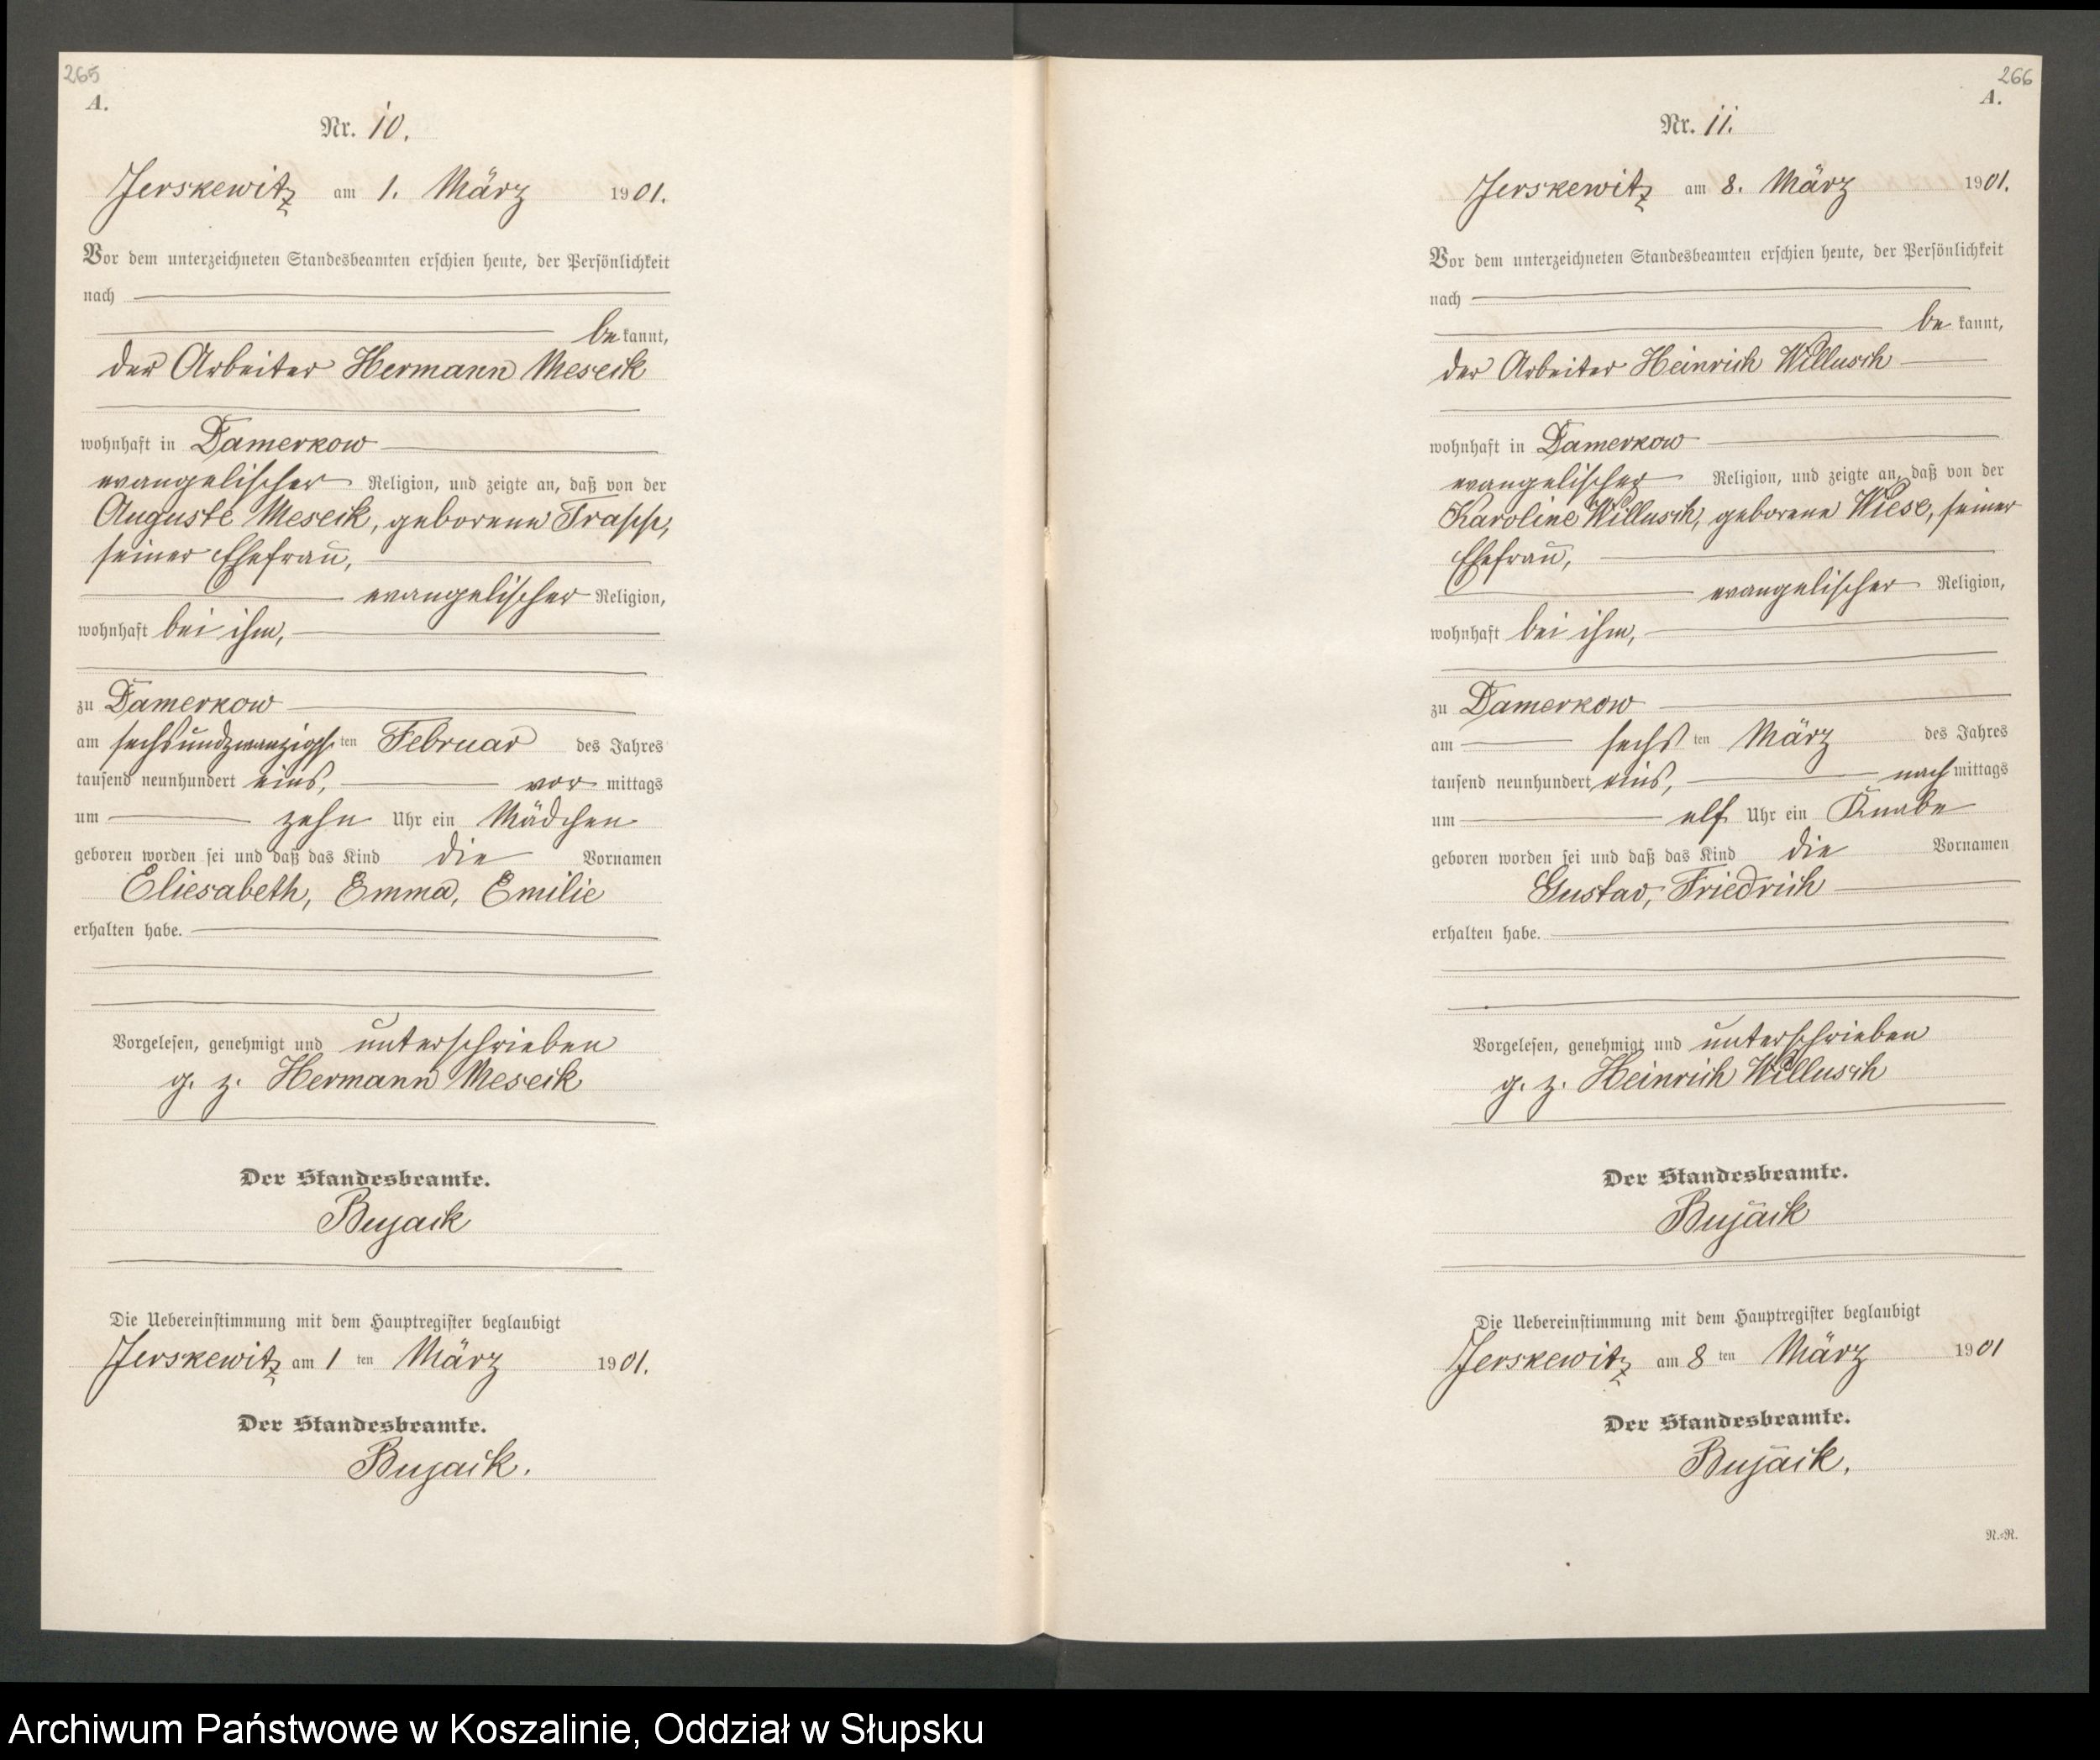 265
A.
Nr. 10.
Jerskewitz am 1. März 1901.
Vor dem unterzeichneten Standesbeamten erschien heute, der Persönlichkeit
nach
be kannt,
der Arbeiter Hermann Meseck
wohnhaft in Damerkow
evangelischer Religion, und zeigte an, daß von der
Auguste Meseck, geborene Trapp,
seiner Ehefrau,
evangelischer Religion,
wohnhaft bei ihm,
zu Damerkow
am sechsundzwanzigsten Februar des Jahres
tausend neunhundert eins, vor mittags
um zehn Uhr ein Mädchen
geboren worden sei und daß das Kind die Vornamen
Eliesabeth, Emma, Emilie
erhalten habe.
Vorgelesen, genehmigt und unterschrieben
g. z. Hermann Meseck
Der Standesbeamte.
Bujack
Die Uebereinstimmung mit dem Hauptregister beglaubigt
Jerskewitz am 1 ten März 1901.
Der Standesbeamte.
Bujack.
266
A.
Nr. 11.
Jerskewitz am 8. März 1901.
Vor dem unterzeichneten Standesbeamten erschien heute, der Persönlichkeit
nach
be kannt,
der Arbeiter Heinrich Willusch
wohnhaft in Damerkow
evangelischer Religion, und zeigte an, daß von der
Karoline Willusch, geborene Wiese, seiner
Ehefrau,
evangelischer Religion,
wohnhaft bei ihm,
zu Damerkow
am sechs ten März des Jahres
tausend neunhundert eins, nach mittags
um elf Uhr ein Knabe
geboren worden sei und daß das Kind die Vornamen
Gustav, Friedrich
erhalten habe.
Vorgelesen, genehmigt und unterschrieben
g. z. Heinrich Willusch
Der Standesbeamte.
Bujack
Die Uebereinstimmung mit dem Hauptregister beglaubigt
Jerskewitz am 8 ten März 1901
Der Standesbeamte.
Bujack.
R.-R.
Archiwum Państwowe w Koszalinie, Oddział w Słupsku